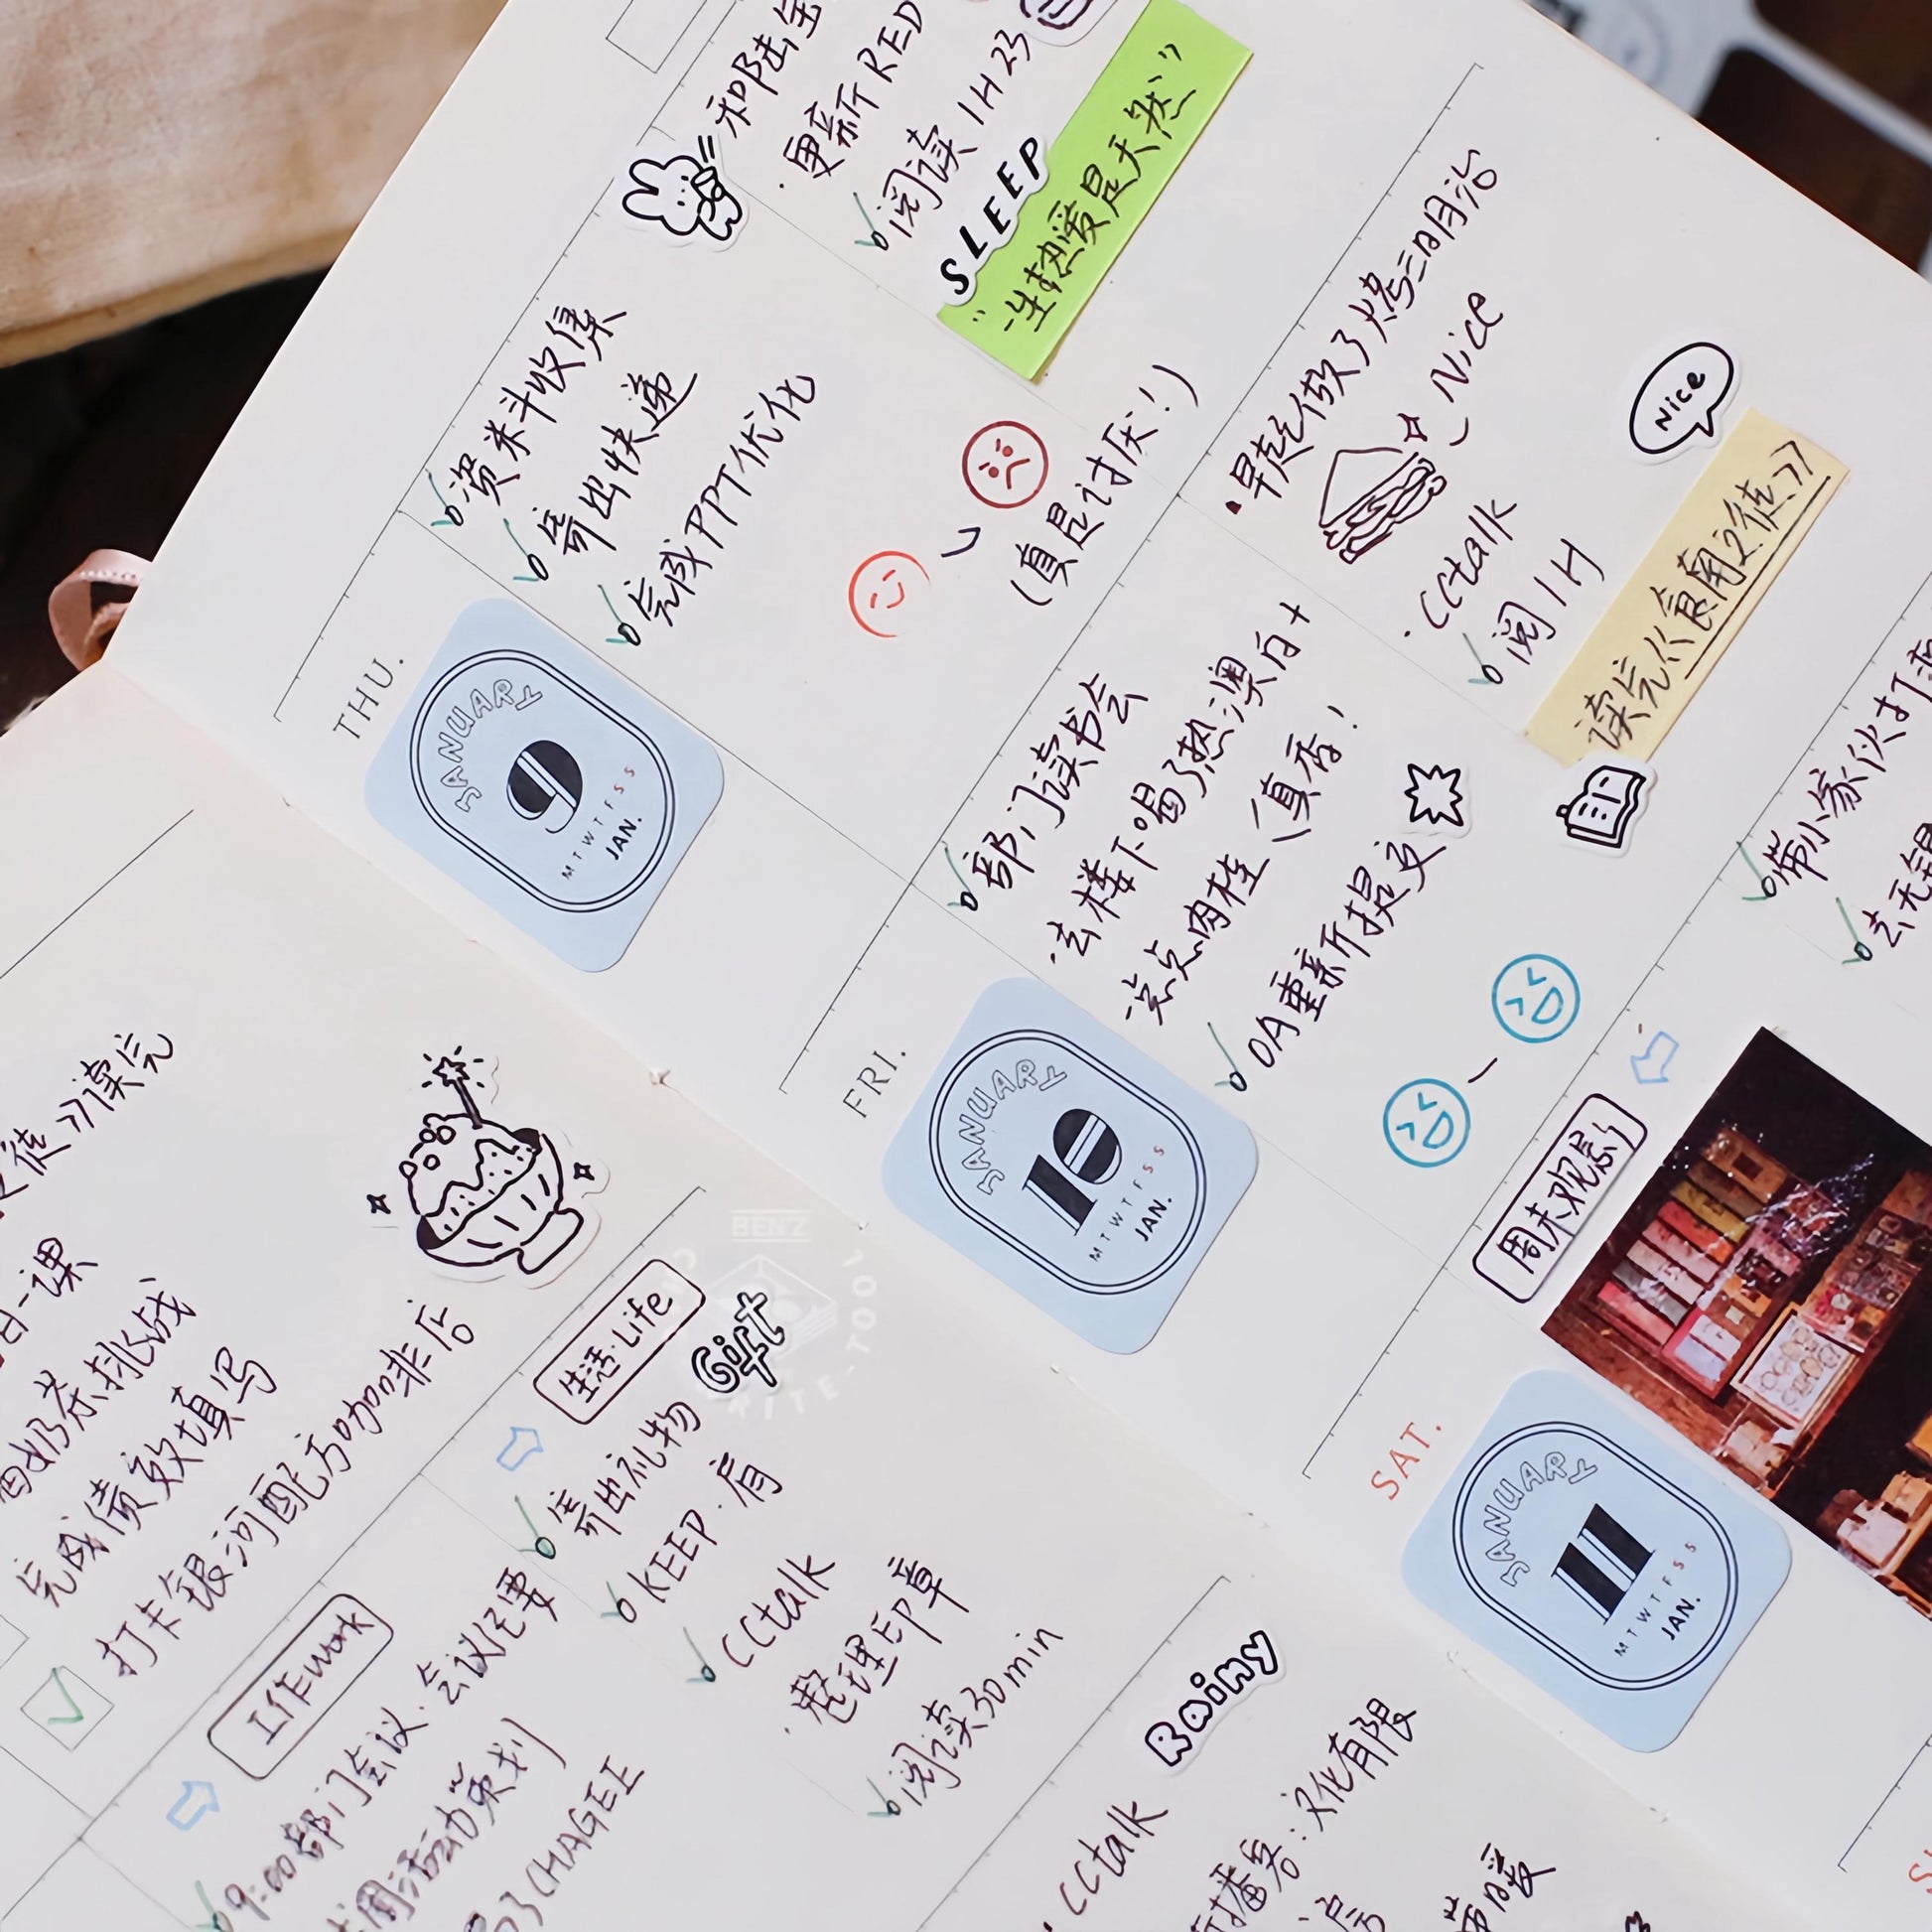 更新 RED
阅读 1H 23
SLEEP
“一生热爱是天然”
THU.
JANUARY
9
M T W T F S S
JAN.
资料收集
寄出快递
完成PPT优化
(真是讨厌!)
FRI.
JANUARY
10
M T W T F S S
JAN.
部门读书会
·去楼下喝了热澳白+
一点点肉桂(真香!
OA重新提交
·早起做了烤三明治
Nice
·CCtalk
阅 1H
Nice
读完《食南之徒》
SAT.
JANUARY
11
M T W T F S S
JAN.
周末观影
带小家伙打
去无锡
之徒》读完
日一课
奶茶挑战
完成绩效填写
打卡银河配方咖啡店
工作work
9:00部门会议·会议纪要
周活动策划
了CHAGEE
生活·Life
Gift
寄出礼物
KEEP·肩
CCtalk
·整理印章
阅读30min
Rainy
·CCtalk
播客:文化有限
BENZ